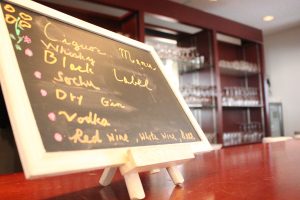 Liquor Menu
Whiskey
Black Label
Sochu
Dry Gin
Vodka
Red Wine, White Wine,